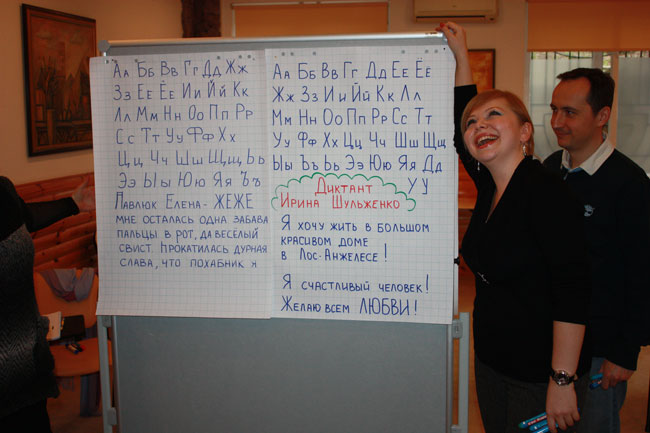 Аа Бб Вв Гг Дд Жж
Зз Ее Ёё Ии Йй Кк
Лл Мм Нн Оо Пп Рр
Сс Тт Уу Фф Хх
Цц Чч Шш Щщ Ьь
Ээ Ыы Юю Яя Ъъ
Павлюк Елена - ЖЕЖЕ
мне осталась одна забава
пальцы в рот, да весёлый
свист. Прокатилась дурная
слава, что похабник я
Аа Бб Вв Гг Дд Ее Ёё
Жж Зз Ии Йй Кк Лл
Мм Нн Оо Пп Рр Сс Тт
Уу Фф Хх Цц Чч Шш Щщ
Ыы Ъъ Ьь Ээ Юю Яя Дд
У У
Диктант
Ирина Шульженко
Я хочу жить в большом
красивом доме
в Лос-Анжелесе!
Я счастливый человек!
Желаю всем ЛЮБВИ!